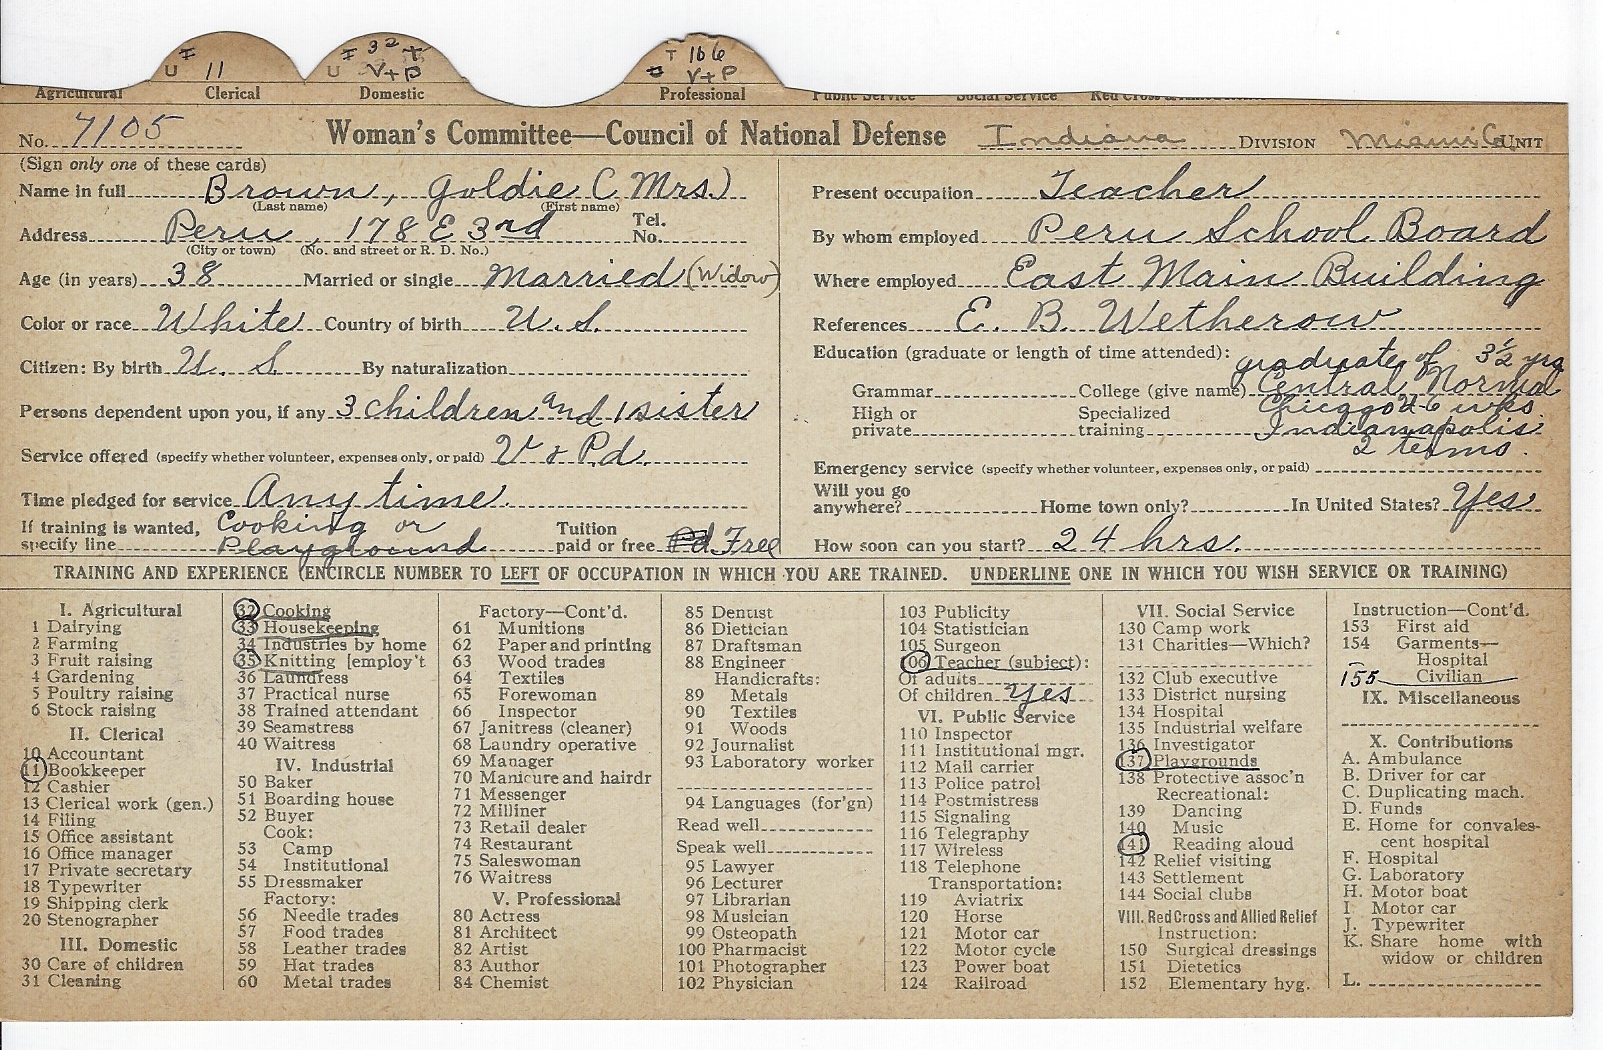 I U 11
I 32 T U V+P
T 106 V+P
Agricultural Clerical Domestic Professional Public Service Social Service Red Cross
No. 7105 Woman's Committee—Council of National Defense Indiana DIVISION Miami Co. UNIT
(Sign only one of these cards)
Name in full Brown, Goldie (Mrs.)
(Last name) (First name)
Address Peru, 178 E 3rd Tel. No.
(City or town) (No. and street or R. D. No.)
Age (in years) 38 Married or single Married (Widow)
Color or race White Country of birth U.S.
Citizen: By birth U. S. By naturalization
Persons dependent upon you, if any 3 children and 1 sister
Service offered (specify whether volunteer, expenses only, or paid) V & Pd.
Time pledged for service Any time.
If training is wanted, specify line Cooking or Playground Tuition paid or free Free
Present occupation Teacher
By whom employed Peru School Board
Where employed East Main Building
References E. B. Wetherow
Education (graduate or length of time attended):
graduate of 3½ yrs
Grammar College (give name) Central Normal
High or private Specialized training Chicago 4-6 wks.
Indianapolis
2 terms.
Emergency service (specify whether volunteer, expenses only, or paid)
Will you go anywhere? Home town only? In United States? Yes
How soon can you start? 24 hrs.
TRAINING AND EXPERIENCE (ENCIRCLE NUMBER TO LEFT OF OCCUPATION IN WHICH YOU ARE TRAINED. UNDERLINE ONE IN WHICH YOU WISH SERVICE OR TRAINING)
I. Agricultural
1 Dairying
2 Farming
3 Fruit raising
4 Gardening
5 Poultry raising
6 Stock raising
II. Clerical
10 Accountant
11 Bookkeeper
12 Cashier
13 Clerical work (gen.)
14 Filing
15 Office assistant
16 Office manager
17 Private secretary
18 Typewriter
19 Shipping clerk
20 Stenographer
III. Domestic
30 Care of children
31 Cleaning
32 Cooking
33 Housekeeping
34 Industries by home
35 Knitting [employ't
36 Laundress
37 Practical nurse
38 Trained attendant
39 Seamstress
40 Waitress
IV. Industrial
50 Baker
51 Boarding house
52 Buyer
Cook:
53 Camp
54 Institutional
55 Dressmaker
Factory:
56 Needle trades
57 Food trades
58 Leather trades
59 Hat trades
60 Metal trades
Factory—Cont'd.
61 Munitions
62 Paper and printing
63 Wood trades
64 Textiles
65 Forewoman
66 Inspector
67 Janitress (cleaner)
68 Laundry operative
69 Manager
70 Manicure and hairdr
71 Messenger
72 Milliner
73 Retail dealer
74 Restaurant
75 Saleswoman
76 Waitress
V. Professional
80 Actress
81 Architect
82 Artist
83 Author
84 Chemist
85 Dentist
86 Dietician
87 Draftsman
88 Engineer
Handicrafts:
89 Metals
90 Textiles
91 Woods
92 Journalist
93 Laboratory worker
94 Languages (for'gn)
Read well
Speak well
95 Lawyer
96 Lecturer
97 Librarian
98 Musician
99 Osteopath
100 Pharmacist
101 Photographer
102 Physician
103 Publicity
104 Statistician
105 Surgeon
106 Teacher (subject):
Of adults
Of children yes
VI. Public Service
110 Inspector
111 Institutional mgr.
112 Mail carrier
113 Police patrol
114 Postmistress
115 Signaling
116 Telegraphy
117 Wireless
118 Telephone
Transportation:
119 Aviatrix
120 Horse
121 Motor car
122 Motor cycle
123 Power boat
124 Railroad
VII. Social Service
130 Camp work
131 Charities—Which?
132 Club executive
133 District nursing
134 Hospital
135 Industrial welfare
136 Investigator
137 Playgrounds
138 Protective assoc'n
Recreational:
139 Dancing
140 Music
141 Reading aloud
142 Relief visiting
143 Settlement
144 Social clubs
VIII. Red Cross and Allied Relief
Instruction:
150 Surgical dressings
151 Dietetics
152 Elementary hyg.
Instruction—Cont'd.
153 First aid
154 Garments—
Hospital
155 Civilian
IX. Miscellaneous
X. Contributions
A. Ambulance
B. Driver for car
C. Duplicating mach.
D. Funds
E. Home for convales-
cent hospital
F. Hospital
G. Laboratory
H. Motor boat
I Motor car
J. Typewriter
K. Share home with
widow or children
L.